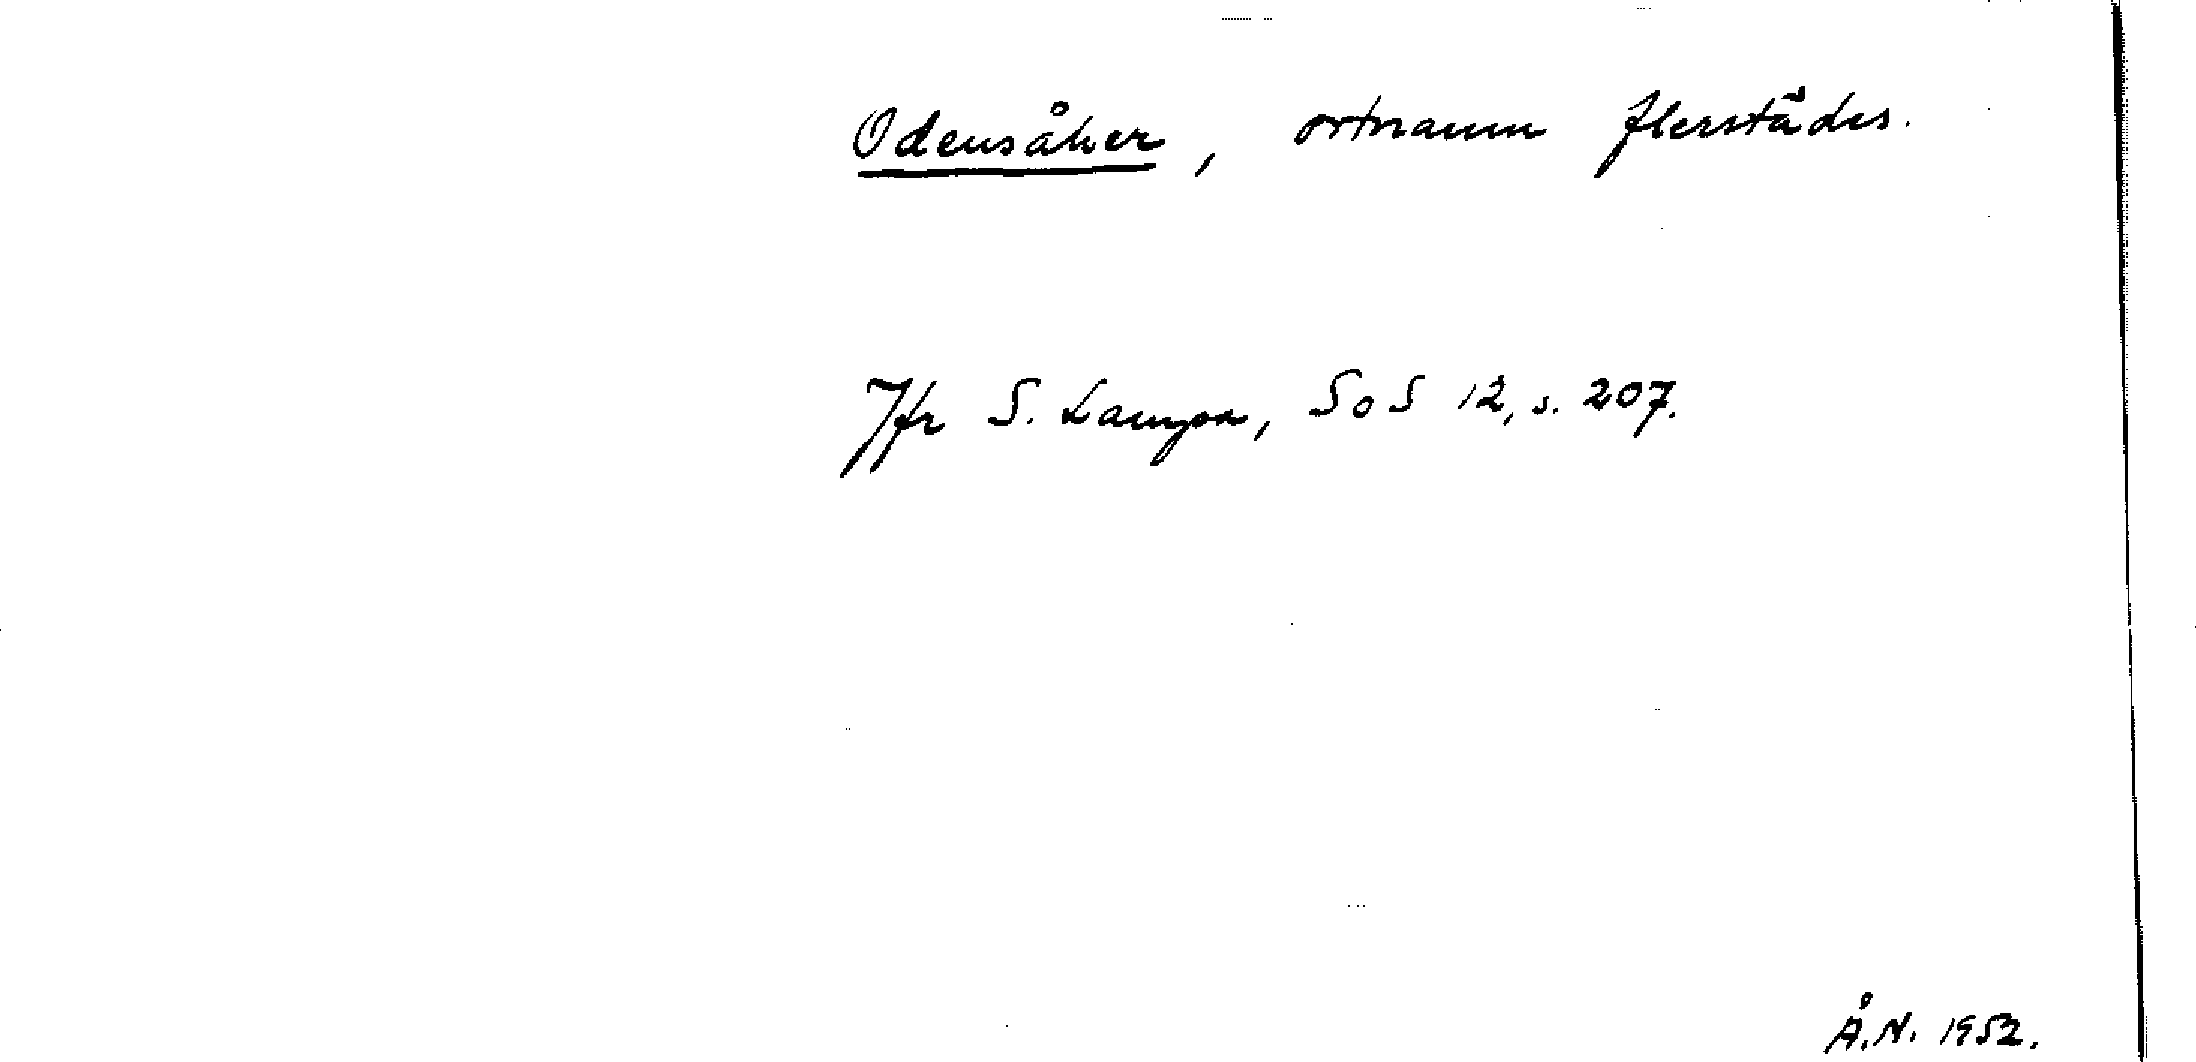 Odensåker, ortnamn flerstädes.
Jfr S. Lampa, SoS 12, s. 207.
Å.N. 1952.